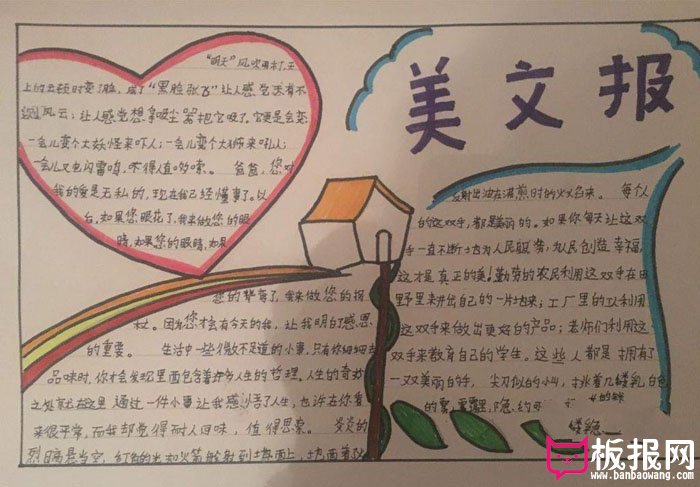 美文报
"明天"风吹雨打,王
上的五颜时变了脸,成了"黑脸张飞"让人感觉天有不
测风云;让人感觉想拿吸尘器把它吸了,它更是会变
一会儿变个大妖怪来吓人;一会儿变个大狮来吼人;
一会儿又电闪雷鸣,不得人直哆嗦。 爸爸,您对
我的爱是无私的,现在我已经懂事了。以
后,如果您眼花了,我来做您的眼
睛,如果您的眼睛,如果
您的背弯了,我来做您的拐
杖。因为您才会有今天的我,让我明白了感恩
的重要。 生活中一些微不足道的小事,只有你细细去
品味时,你才会发现里面包含着许多人生的哲理。人生的奇妙
之处就在这里 通过一件小事让我感悟了人生,也许在你看
来很平常,而我却觉得耐人回味,值得思索。 炎炎的
烈日高悬当空,红的光和火箭般射到地面上,地面着火
反射出油在沸煎时的火来。 每个人
的这双手,都是美丽的。如果你每天让这双
手一直不断地为人民服务,为民创造幸福,
这才是真正的美!勤劳的农民利用这双手在田
野里耕出自己的一片出来;工厂里的工利用
这双手来做出更好的产品;老师们利用这
双手来教育自己的学生。这些人都是拥有了
一双美丽的手, 尖刀似的小山,挑着几缕乳白色
的雾,雾霭,隐,约
缕稳
板报网
www.banbaowang.com